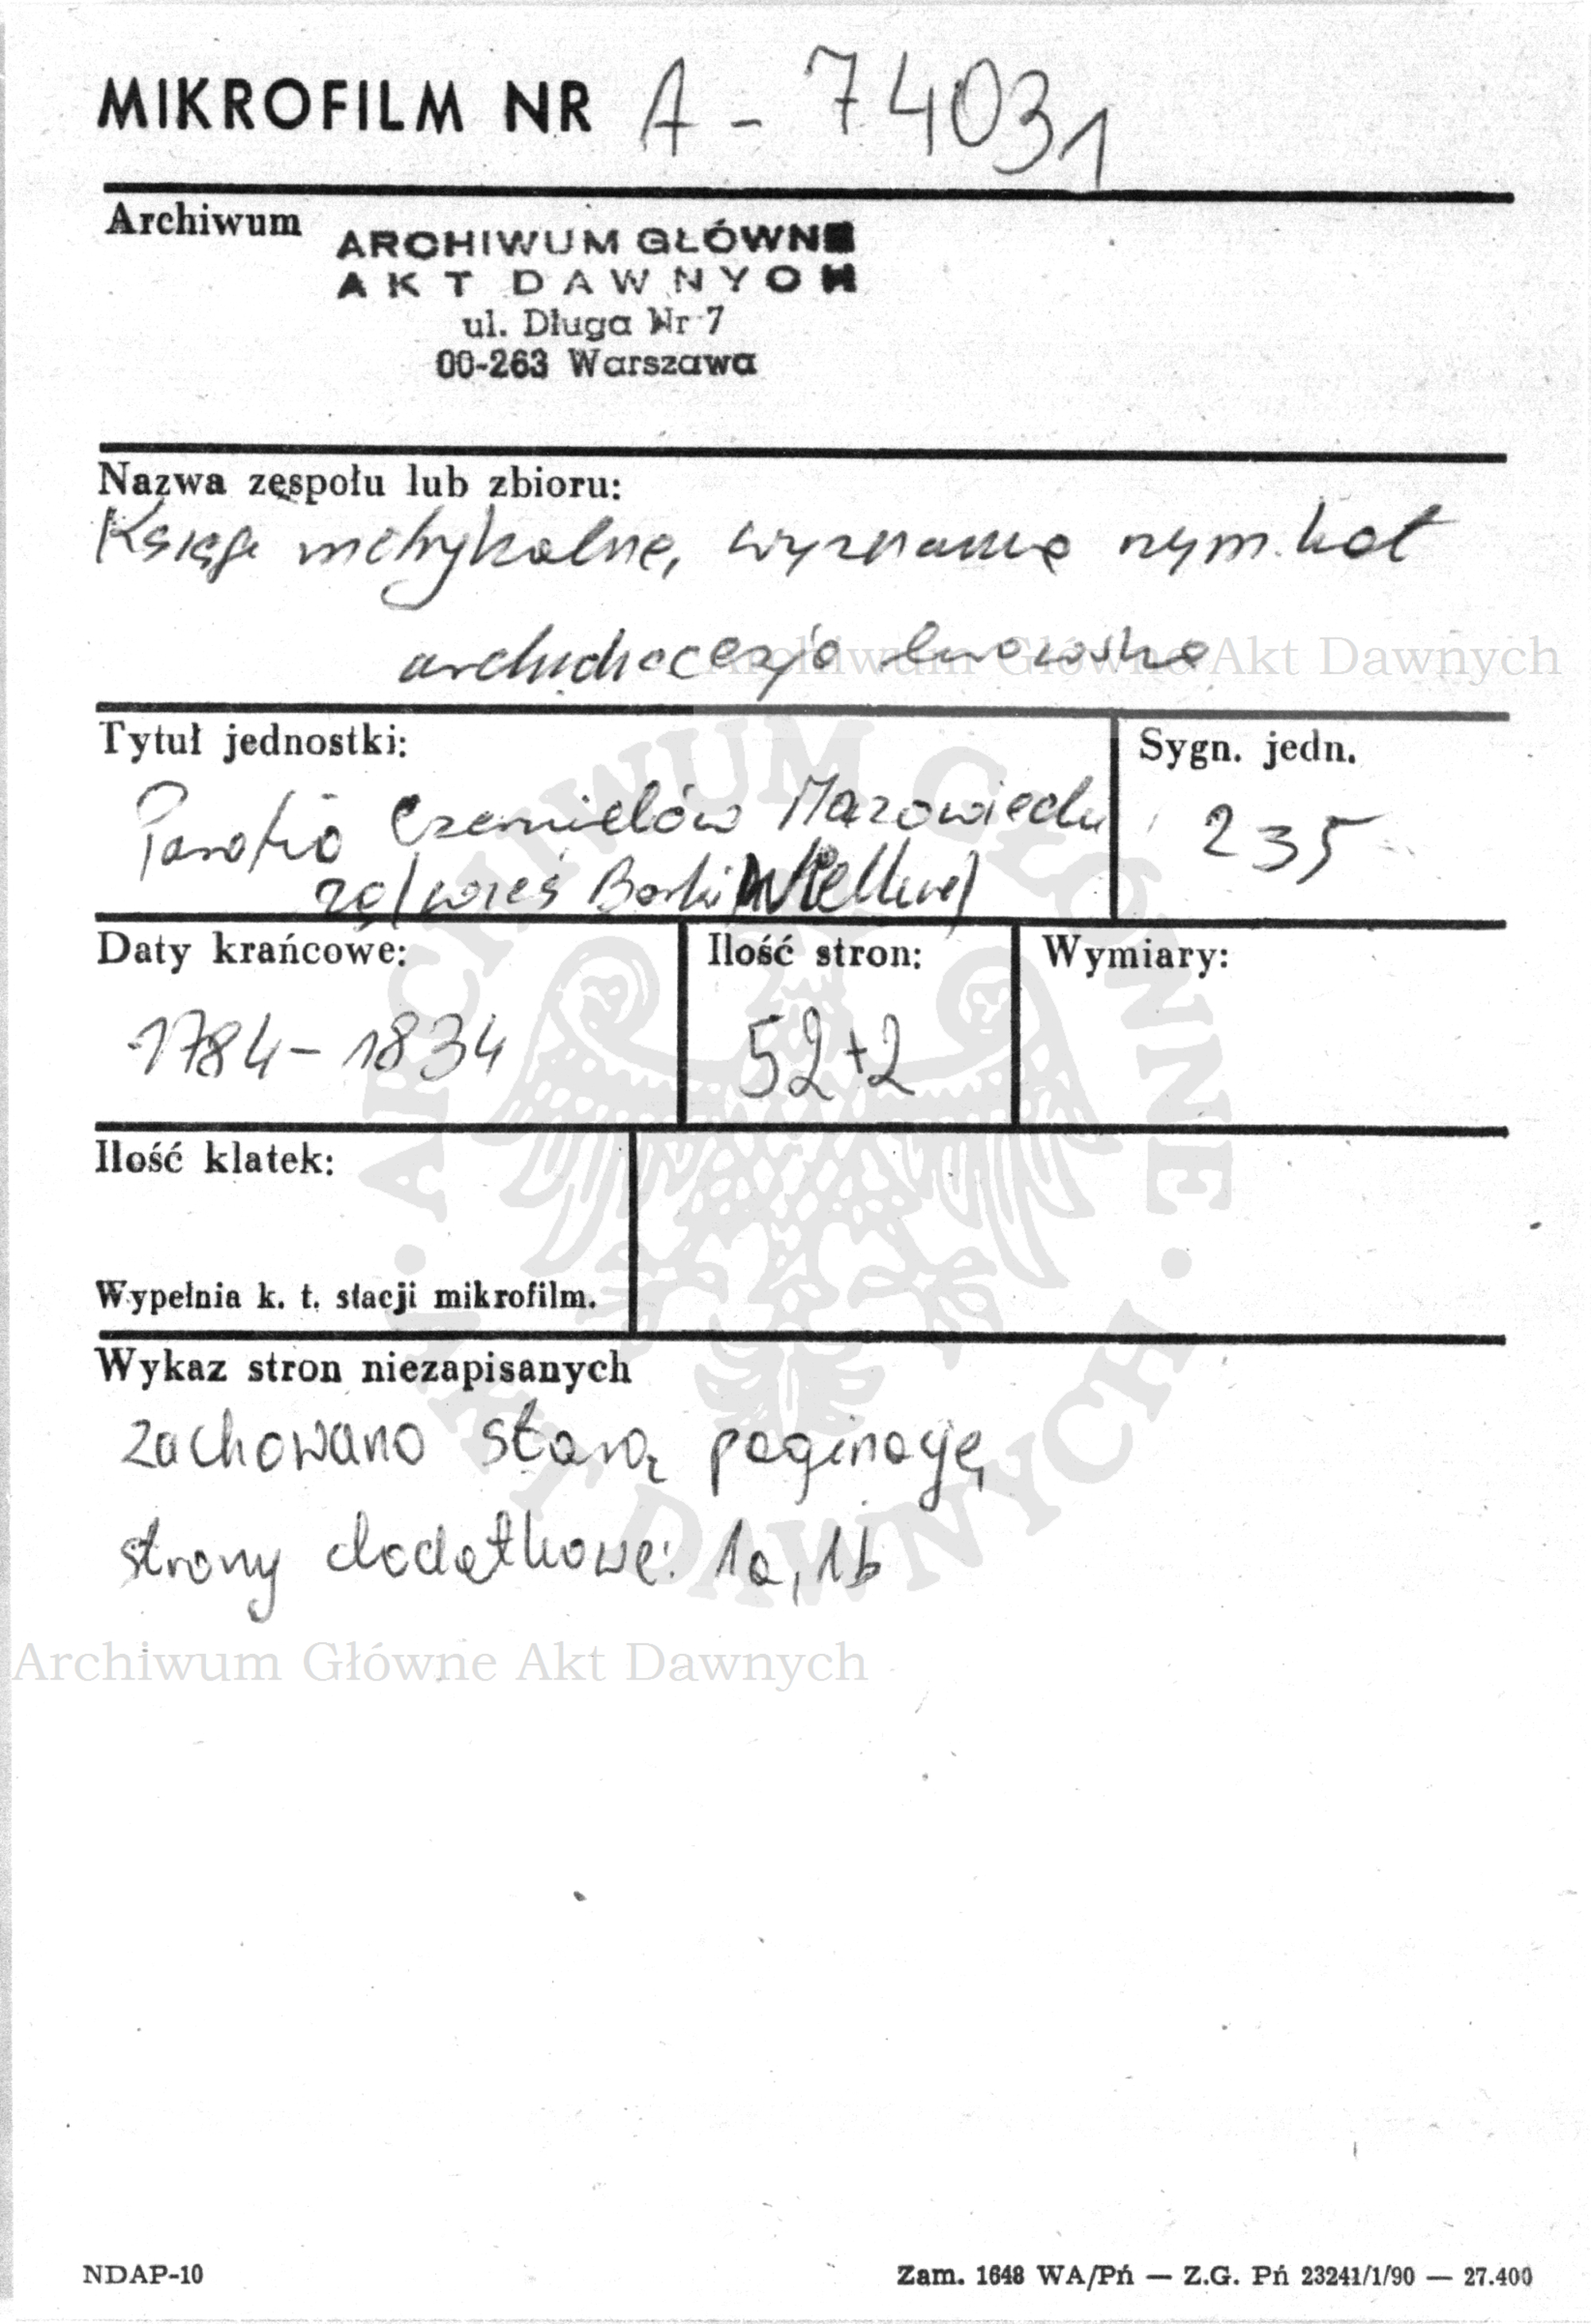 MIKROFILM NR A - 74031
Archiwum
ARCHIWUM GŁÓWNE
AKT DAWNYCH
ul. Długa Nr 7
00-263 Warszawa
Nazwa zespołu lub zbioru:
Księgi metrykalne, wyznania rzym. kat
archidiecezja lwowska
Archiwum Główne Akt Dawnych
Tytuł jednostki:
Parafia Czemielów Mazowiecki
za/wieś Borki Wielkie/
Sygn. jedn.
235
Daty krańcowe:
1784 - 1834
Ilość stron:
52+2
Wymiary:
Ilość klatek:
Wypełnia k. t. stacji mikrofilm.
Wykaz stron niezapisanych
zachowano starą paginację,
strony dodatkowe: 1a, 1b
ARCHIWUM GŁÓWNE
AKT DAWNYCH
Archiwum Główne Akt Dawnych
NDAP-10
Zam. 1648 WA/Pń — Z.G. Pń 23241/1/90 — 27.400